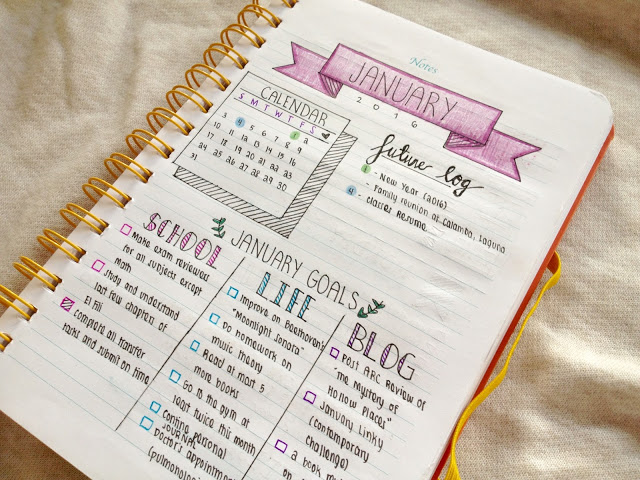 Notes
JANUARY
2016
CALENDAR
S M T W T F S
1 2
3 4 5 6 7 8 9
10 11 12 13 14 15 16
17 18 19 20 21 22 23
24 25 26 27 28 29 30
31
future log
1 - New Year (2016)
- Family reunion @ Calamba, Laguna
4 - Classes Resume.
JANUARY GOALS
SCHOOL
Make exam reviewers
for all subjects except
Math
Study and understand
last few chapters of
El Fili
Compare all transfer
tasks and submit on time
LIFE
Improve on Beethoven's
"Moonlight Sonata"
Do homework on
music theory
Read at most 5
more books
Go to the gym at
least twice this month
personal
JOURNAL
Doctor's appointment
(pulmonologist
BLOG
Post ARC Review of
"The Mystery of
Hollow Places"
January Linky
(Contemporary
Challenge)
a book
on